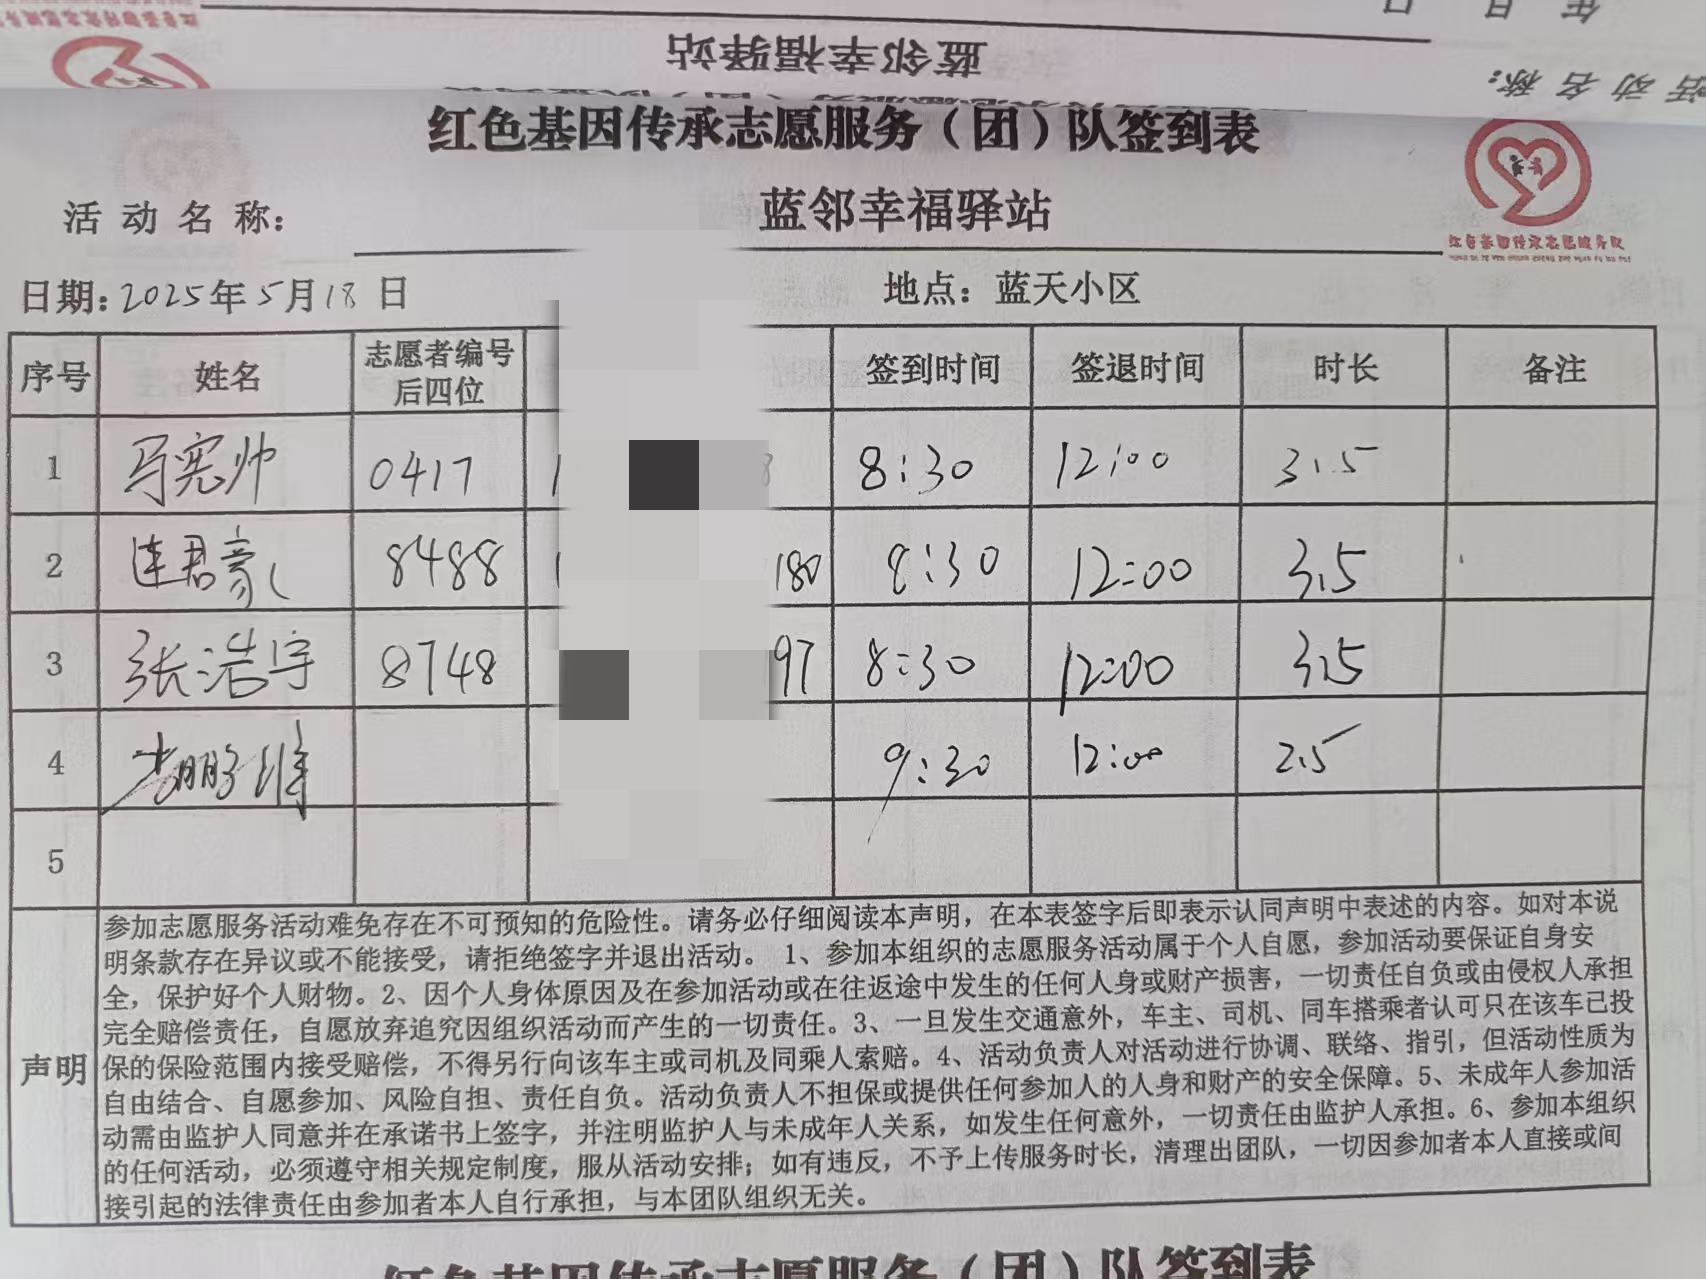 年 月 日
蓝邻幸福驿站
活动名称：
红色基因传承志愿服务（团）队签到表
活动名称： 蓝邻幸福驿站
红色基因传承志愿服务队
日期：2025年5月18日 地点：蓝天小区
序号 姓名 志愿者编号后四位 签到时间 签退时间 时长 备注
1 马宪帅 0417 1 8 8:30 12:00 3.5
2 连君豪 8488 1 180 8:30 12:00 3.5
3 张浩宇 8748 97 8:30 12:00 3.5
4 9:30 12:00 2.5
5
声明
参加志愿服务活动难免存在不可预知的危险性。请务必仔细阅读本声明，在本表签字后即表示认同声明中表述的内容。如对本说
明条款存在异议或不能接受，请拒绝签字并退出活动。 1、参加本组织的志愿服务活动属于个人自愿，参加活动要保证自身安
全，保护好个人财物。2、因个人身体原因及在参加活动或在往返途中发生的任何人身或财产损害，一切责任自负或由侵权人承担
完全赔偿责任，自愿放弃追究因组织活动而产生的一切责任。3、一旦发生交通意外，车主、司机、同车搭乘者认可只在该车已投
保的保险范围内接受赔偿，不得另行向该车主或司机及同乘人索赔。4、活动负责人对活动进行协调、联络、指引，但活动性质为
自由结合、自愿参加、风险自担、责任自负。活动负责人不担保或提供任何参加人的人身和财产的安全保障。5、未成年人参加活
动需由监护人同意并在承诺书上签字，并注明监护人与未成年人关系，如发生任何意外，一切责任由监护人承担。6、参加本组织
的任何活动，必须遵守相关规定制度，服从活动安排；如有违反，不予上传服务时长，清理出团队，一切因参加者本人直接或间
接引起的法律责任由参加者本人自行承担，与本团队组织无关。
红色基因传承志愿服务（团）队签到表